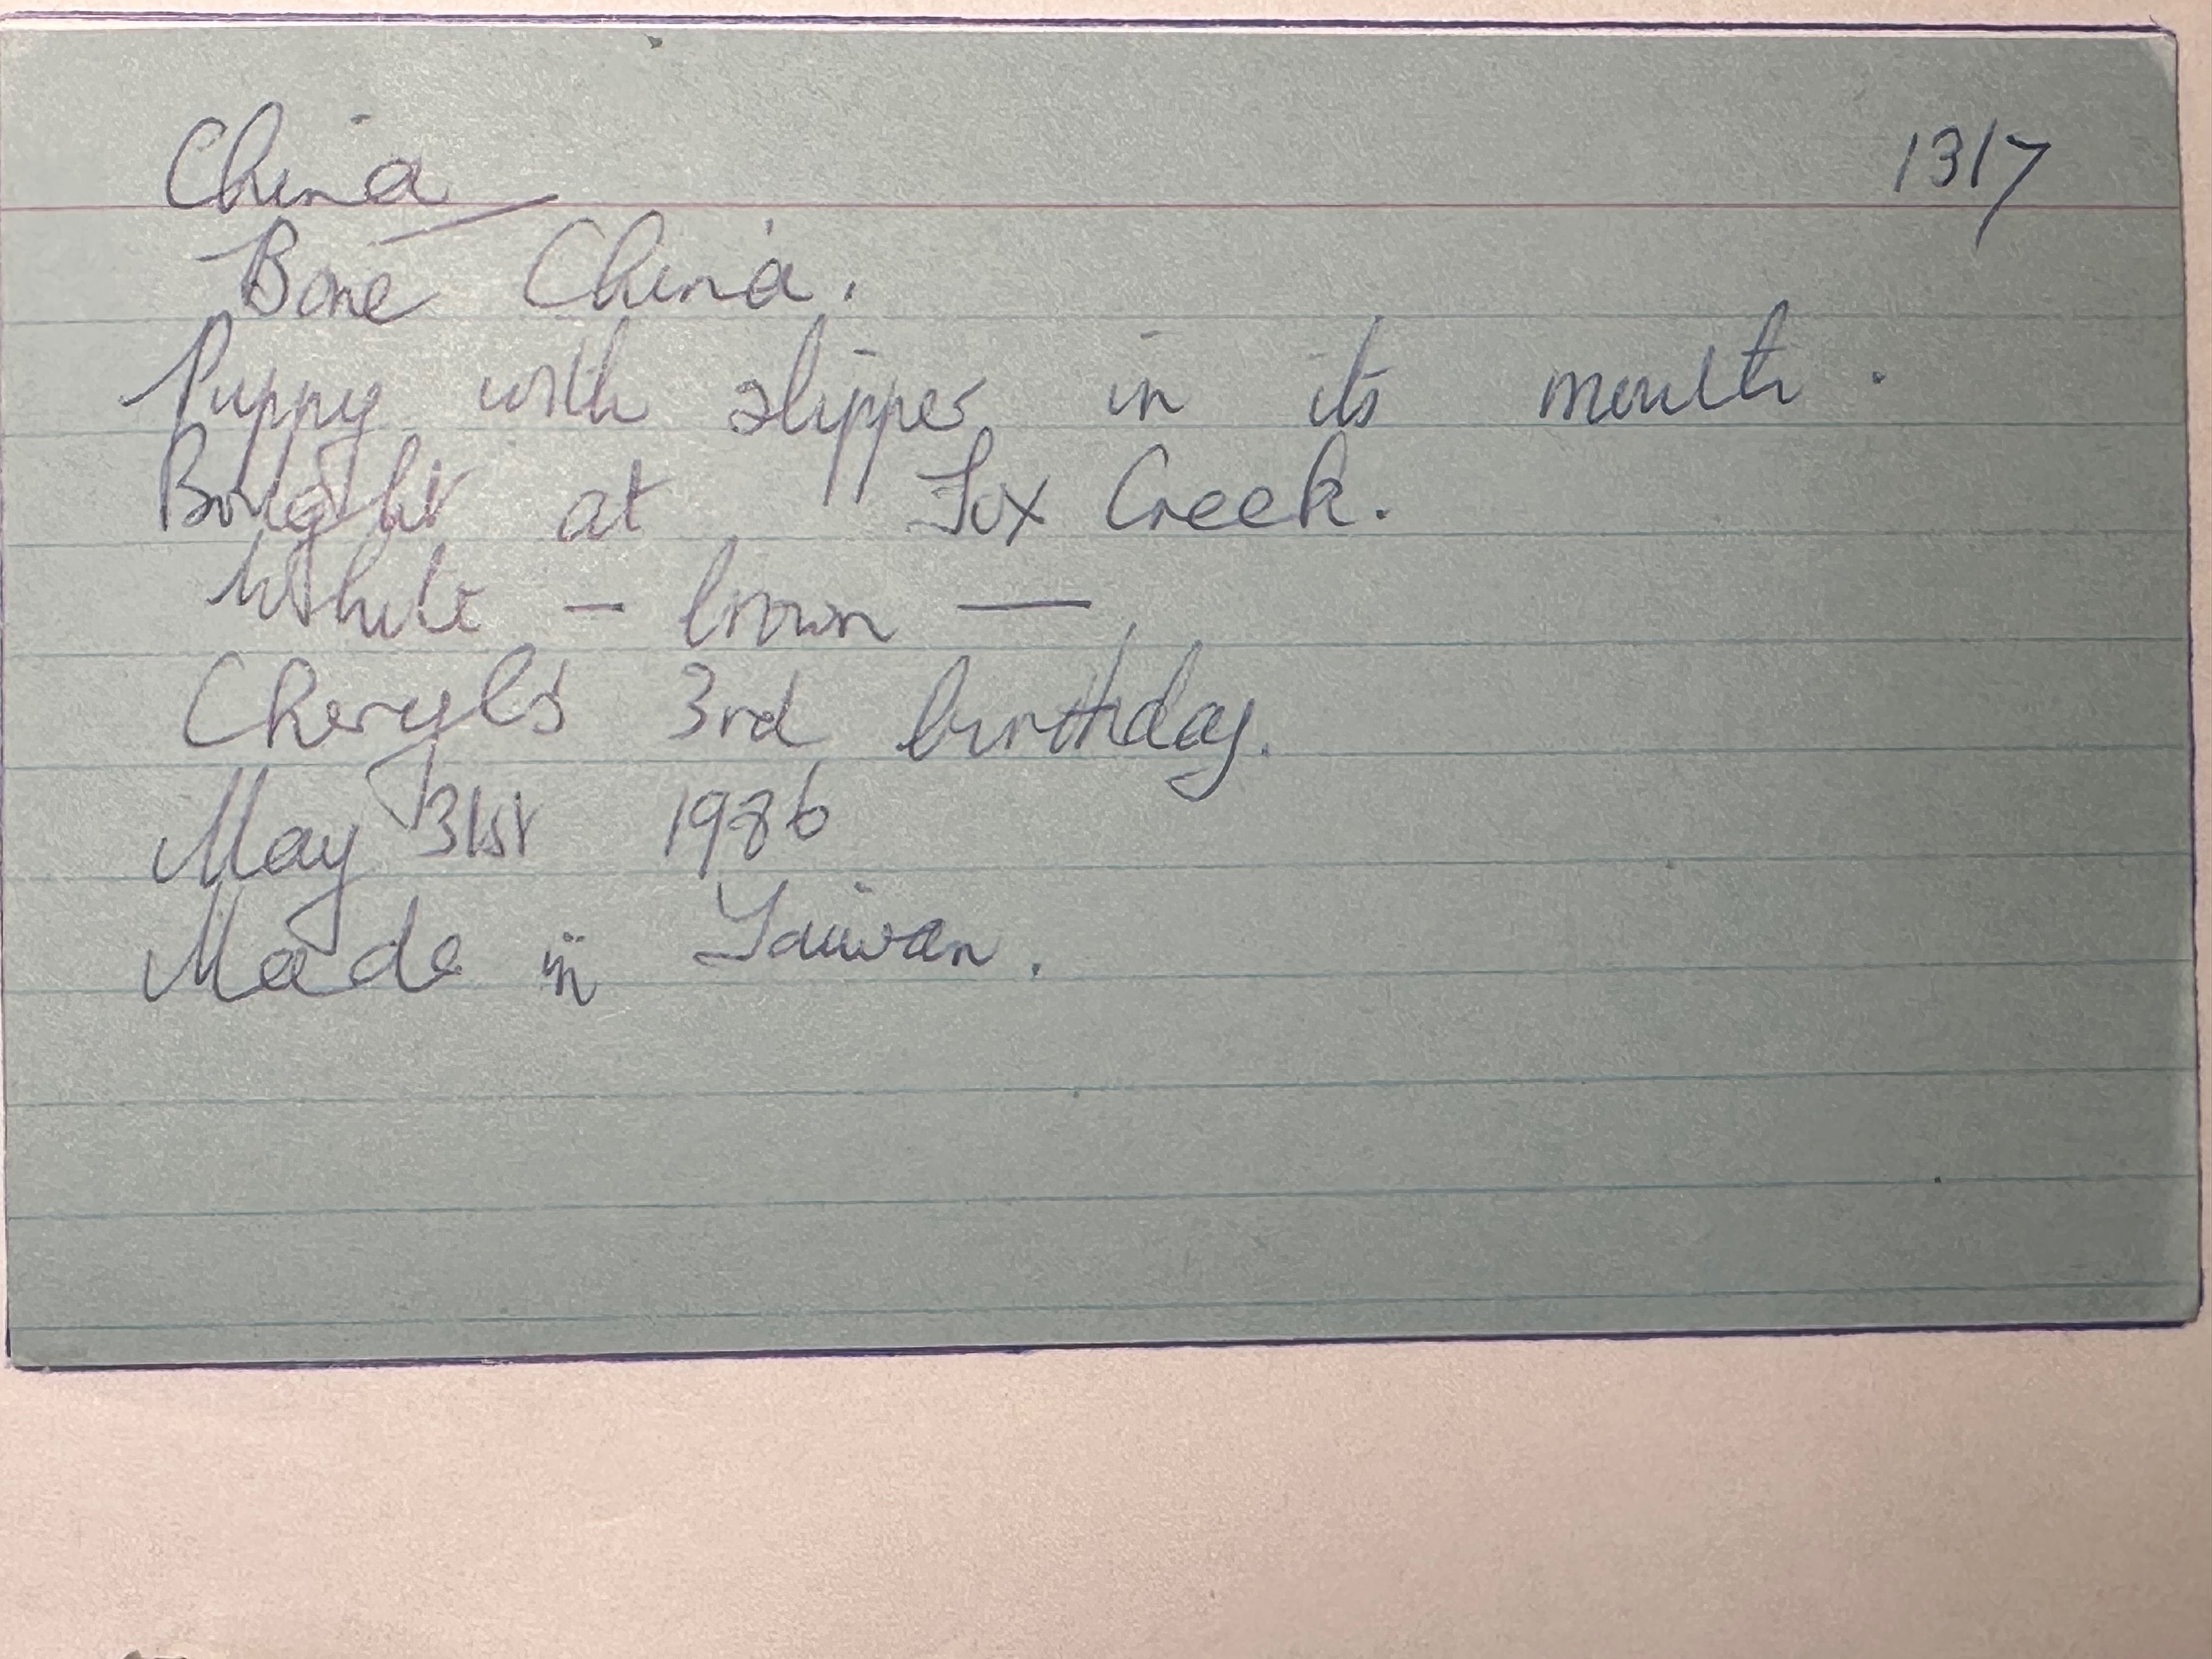 China 1317
Bone China.
Puppy with slipper in its mouth.
Bought at Fox Creek.
White - brown —
Cheryls 3rd birthday.
May 31st 1986
Made in Taiwan.